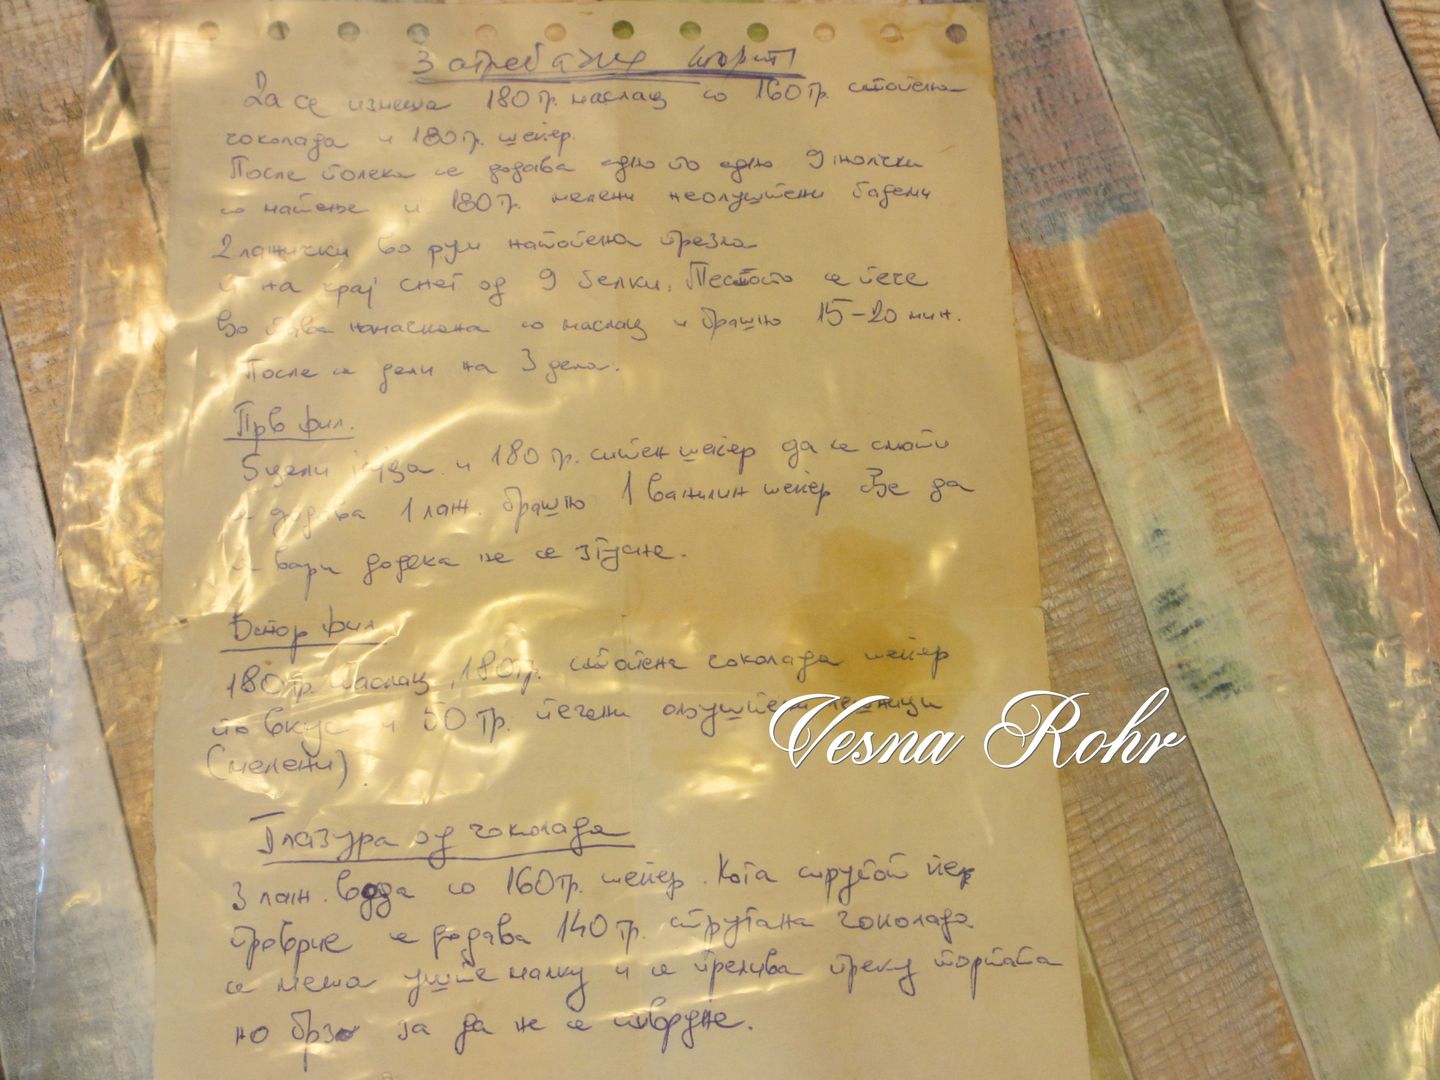 Загребачка торта
Да се измеша 180 гр. маслац со 160 гр. стопена
чоколада и 180 гр. шеќер.
После полека се додава едно по едно 9 жолчки
со матење и 180 гр. мелени неолуштени бадеми
2 лажички во рум натопена презла
и на крај снег од 9 белки. Тестото се пече
во тава намачкана со маслац и брашно 15-20 мин.
После се дели на 3 дела.
Прв фил.
5 цели јајца и 180 гр. ситен шеќер да се смати
се додава 1 лаж. брашно 1 ванилин шеќер Се да
се вари додека не се згусне.
Втор фил
180 гр. маслац, 180 гр. стопена чоколада шеќер
по вкус и 50 гр. печени олуштени лешници
(мелени)
Vesna Rohr
Глазура од чоколада
3 лаж. вода со 160 гр. шеќер. Кога шеќер
проврие се додава 140 гр. стругана чоколада
се меша уште малку и се прелива преку тортата
но брзо за да не се стврдне.